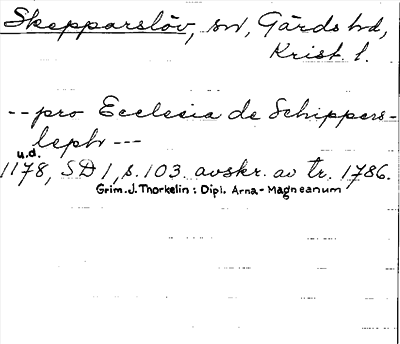 Skepparslöv, sn, Gärds hd,
Krist. l.
-- pro Ecclesia de Schippers-
leph ---
u.d.
1178, SD 1, s. 103. avskr. av tr. 1786.
Grim. J. Thorkelin: Dipl. Arna-Magneanum